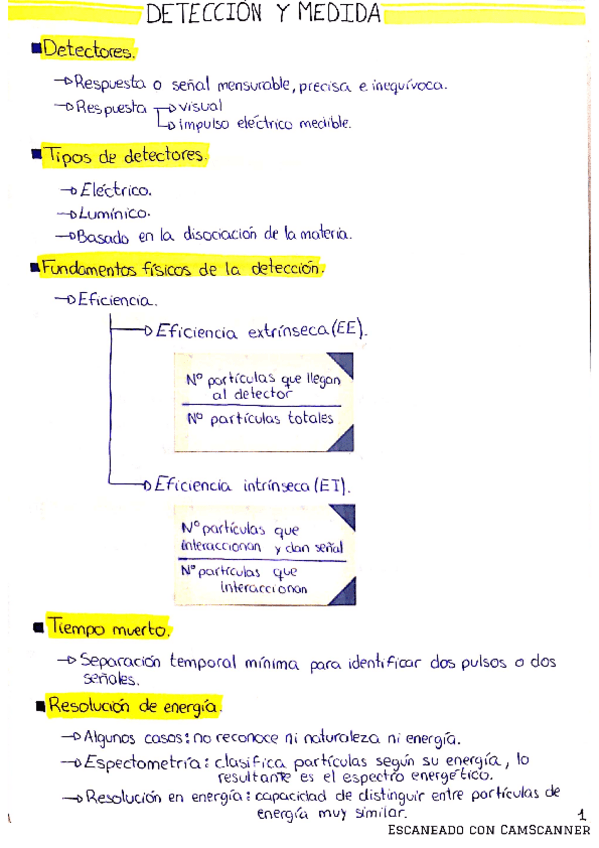 DETECCIÓN Y MEDIDA
Detectores.
Respuesta o señal mensurable, precisa e inequívoca.
Respuesta visual
impulso eléctrico medible.
Tipos de detectores.
Eléctrico.
Lumínico.
Basado en la disociación de la materia.
Fundamentos físicos de la detección.
Eficiencia.
Eficiencia extrínseca (EE).
Nº partículas que llegan
al detector
Nº partículas totales
Eficiencia intrínseca (EI).
Nº partículas que
interaccionan y dan señal
Nº partículas que
interaccionan
Tiempo muerto.
Separación temporal mínima para identificar dos pulsos o dos
señales.
Resolución de energía.
Algunos casos: no reconoce ni naturaleza ni energía.
Espectometría: clasifica partículas según su energía, lo
resultante es el espectro energético.
Resolución en energía: capacidad de distinguir entre partículas de
energía muy similar.
1
ESCANEADO CON CAMSCANNER